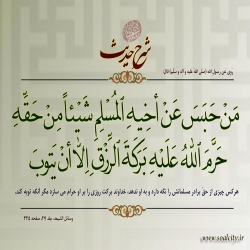 شرح حدیث
روی عن رسول الله (صلی الله علیه و آله و سلم) قال:
مَنْ حَبَسَ عَنْ أَخِيهِ الْمُسْلِمِ شَيْئاً مِنْ حَقِّهِ
حَرَّمَ اللهُ عَلَيْهِ بَرَكَةَ الرِّزْقِ إِلَّا أَنْ يَتُوبَ
هرکس چیزی از حق برادر مسلمانش را نگه دارد و به او ندهد، خداوند برکت روزی را بر او حرام می سازد مگر آنکه توبه کند.
وسائل الشیعه، جلد ۲۷، صفحه ۳۲۵
www.soalcity.ir